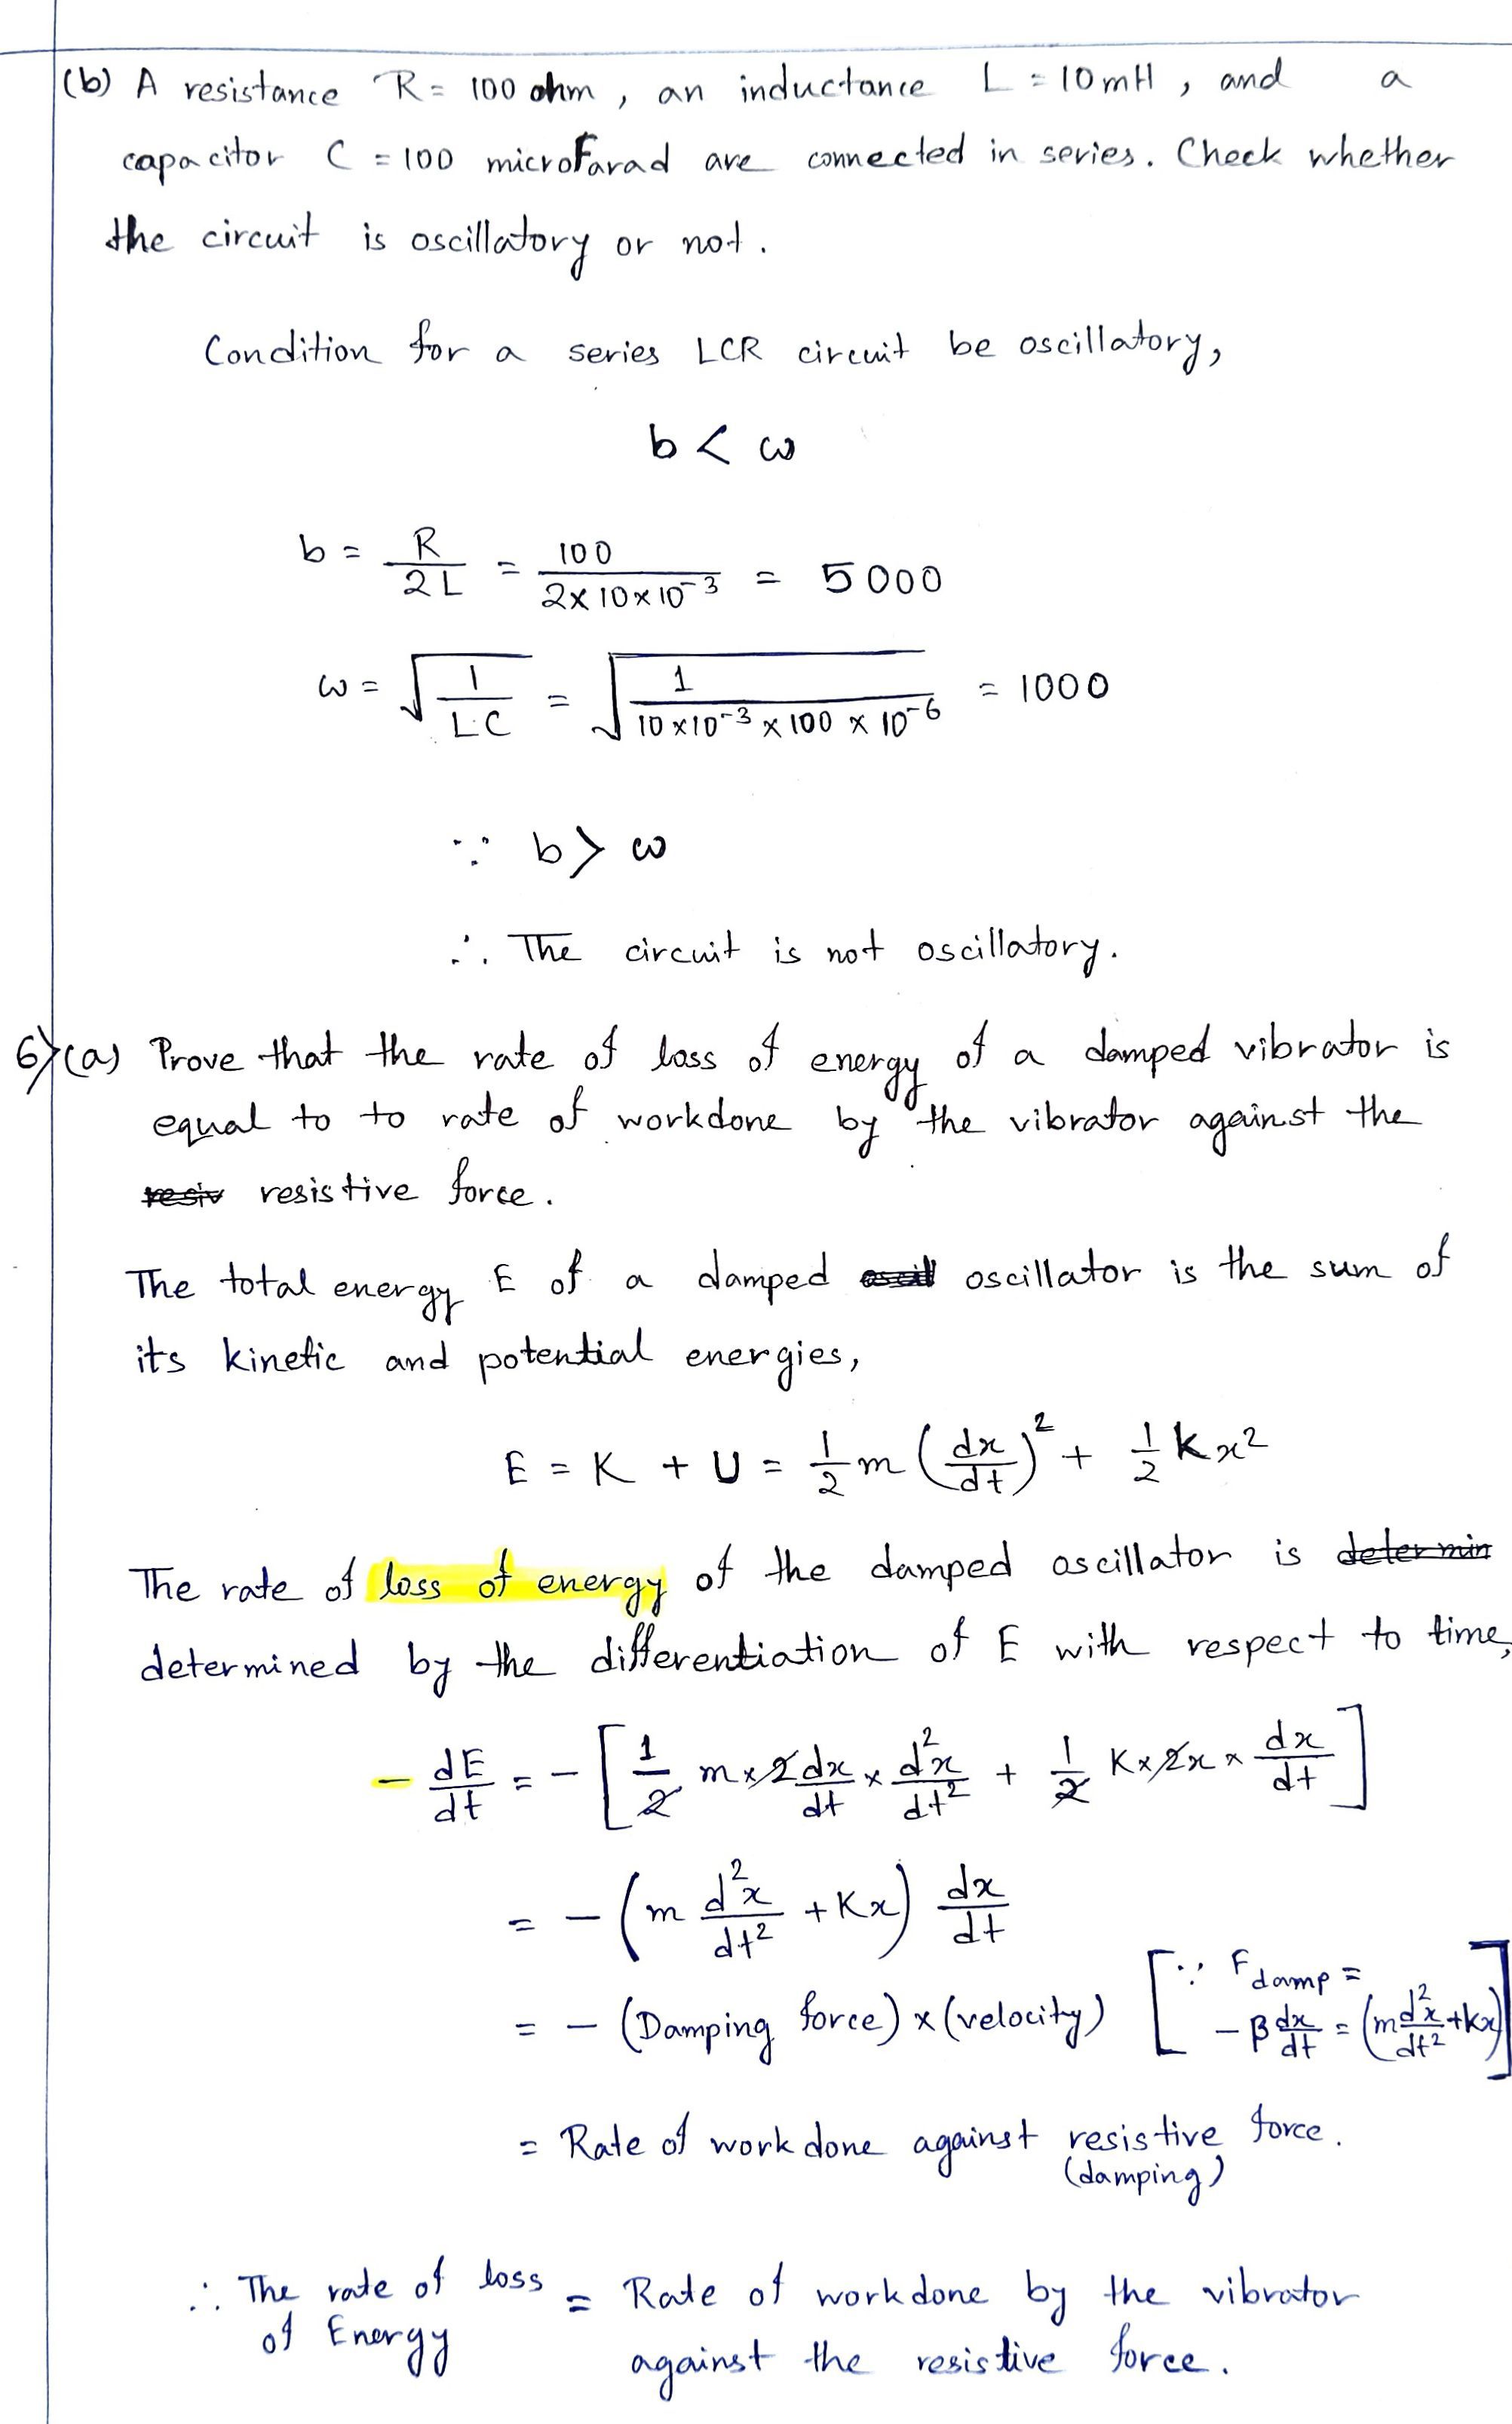 (b) A resistance R = 100 ohm, an inductance L = 10 mH, and a
capacitor C = 100 microFarad are connected in series. Check whether
the circuit is oscillatory or not.
Condition for a series LCR circuit be oscillatory,
b < ω
b = R/2L = 100/(2×10×10⁻³) = 5000
ω = √(1/LC) = √(1/(10×10⁻³×100×10⁻⁶)) = 1000
∵ b > ω
∴ The circuit is not oscillatory.
6)(a) Prove that the rate of loss of energy of a damped vibrator is
equal to to rate of workdone by the vibrator against the
resiv resistive force.
The total energy E of a damped oscill oscillator is the sum of
its kinetic and potential energies,
E = K + U = 1/2 m (dx/dt)² + 1/2 kx²
The rate of loss of energy of the damped oscillator is determin
determined by the differentiation of E with respect to time,
- dE/dt = - [1/2 m×2dx/dt × d²x/dt² + 1/2 K×2x × dx/dt]
= - (m d²x/dt² + Kx) dx/dt
= - (Damping force) × (velocity) [∵ Fdamp = -β dx/dt = (m d²x/dt² + kx)]
= Rate of work done against resistive force.
(damping)
∴ The rate of loss = Rate of workdone by the vibrator
of Energy against the resistive force.